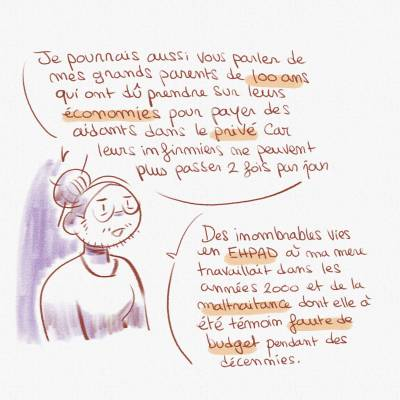 Je pourrais aussi vous parler de
mes grands parents de 100 ans
qui ont dû prendre sur leurs
économies pour payer des
aidants dans le privé car
leurs infirmiers ne peuvent
plus passer 2 fois par jour
Des innombrables vies
en EHPAD où ma mère
travaillait dans les
années 2000 et de la
maltraitance dont elle a
été témoin faute de
budget pendant des
décennies.